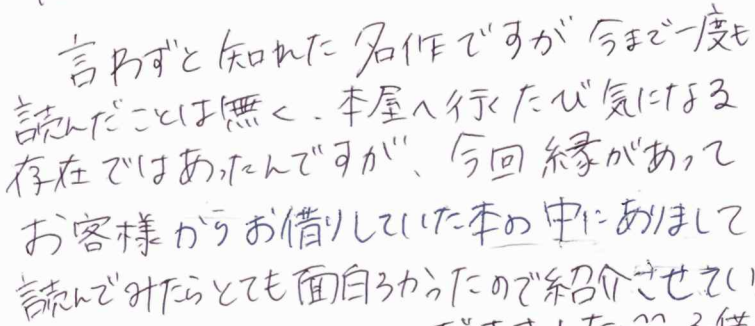 言わずと知れた名作ですが今まで一度も
読んだことは無く、本屋へ行くたび気になる
存在ではあったんですが、今回縁があって
お客様からお借りしていた本の中にありまして
読んでみたらとても面白ろかったので紹介させてい